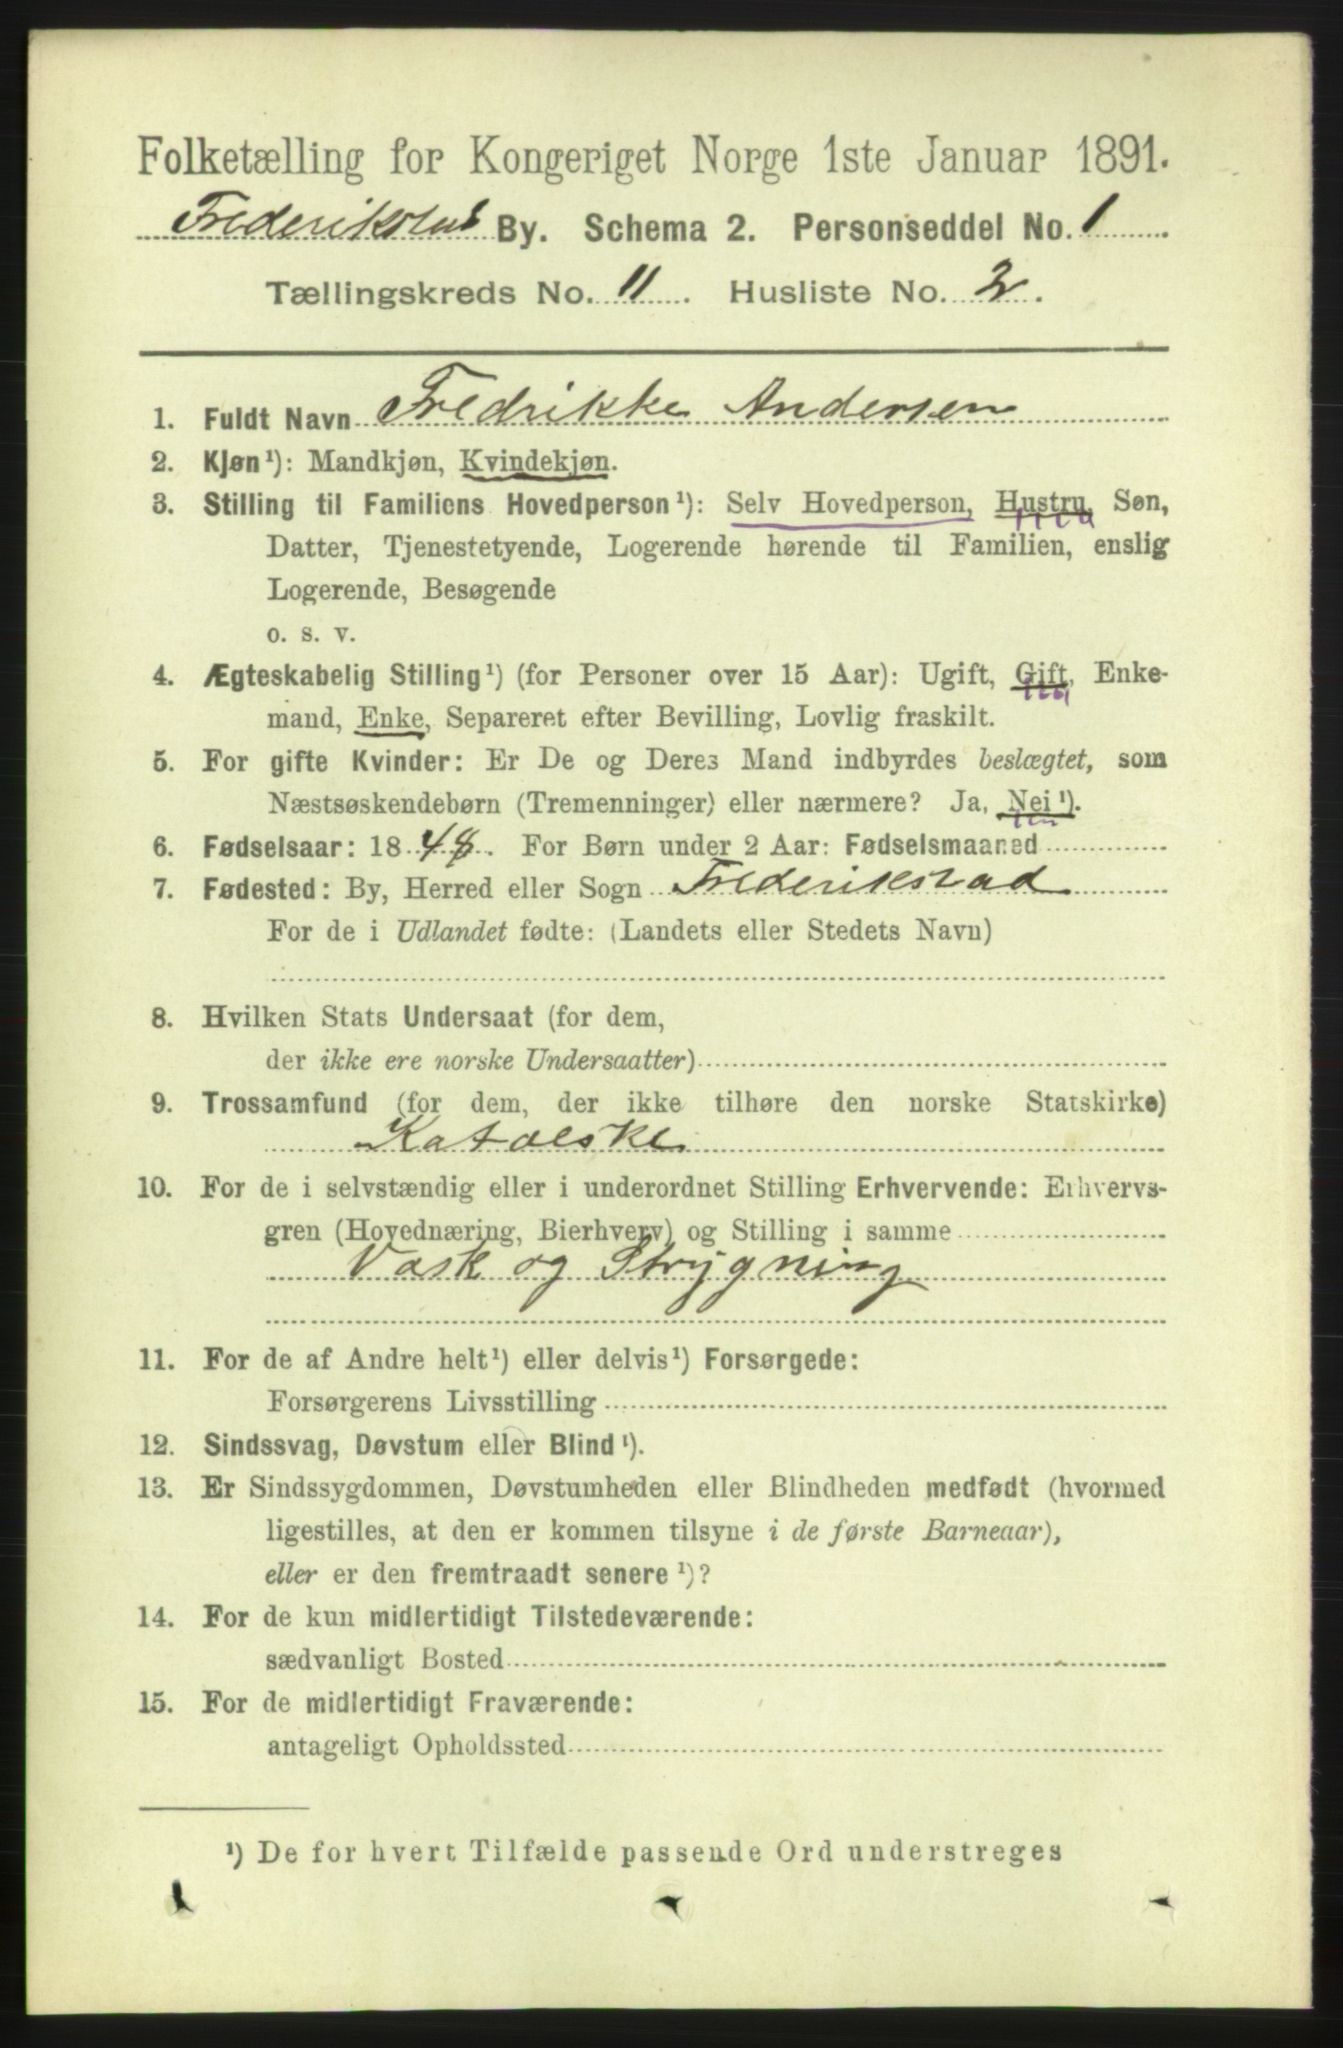 Folketælling for Kongeriget Norge 1ste Januar 1891.
Frederikstad By. Schema 2. Personseddel No. 1
Tællingskreds No. 11. Husliste No. 2.
1. Fuldt Navn Fredrikke Andersen
2. Kjøn¹): Mandkjøn, Kvindekjøn.
3. Stilling til Familiens Hovedperson¹): Selv Hovedperson, Hustru, Søn,
Datter, Tjenestetyende, Logerende hørende til Familien, enslig
Logerende, Besøgende
o. s. v.
4. Ægteskabelig Stilling¹) (for Personer over 15 Aar): Ugift, Gift, Enke-
mand, Enke, Separeret efter Bevilling, Lovlig fraskilt.
5. For gifte Kvinder: Er De og Deres Mand indbyrdes beslægtet, som
Næstsøskendebørn (Tremenninger) eller nærmere? Ja, Nei¹).
6. Fødselsaar: 1848. For Børn under 2 Aar: Fødselsmaaned
7. Fødested: By, Herred eller Sogn Frederikstad
For de i Udlandet fødte: (Landets eller Stedets Navn)
8. Hvilken Stats Undersaat (for dem,
der ikke ere norske Undersaatter)
9. Trossamfund (for dem, der ikke tilhøre den norske Statskirke)
Katolske
10. For de i selvstændig eller i underordnet Stilling Erhvervende: Erhvervs-
gren (Hovednæring, Bierhverv) og Stilling i samme
Vask og Strygning
11. For de af Andre helt¹) eller delvis¹) Forsørgede:
Forsørgerens Livsstilling
12. Sindssvag, Døvstum eller Blind¹).
13. Er Sindssygdommen, Døvstumheden eller Blindheden medfødt (hvormed
ligestilles, at den er kommen tilsyne i de første Barneaar),
eller er den fremtraadt senere¹)?
14. For de kun midlertidigt Tilstedeværende:
sædvanligt Bosted
15. For de midlertidigt Fraværende:
antageligt Opholdssted
¹) De for hvert Tilfælde passende Ord understreges